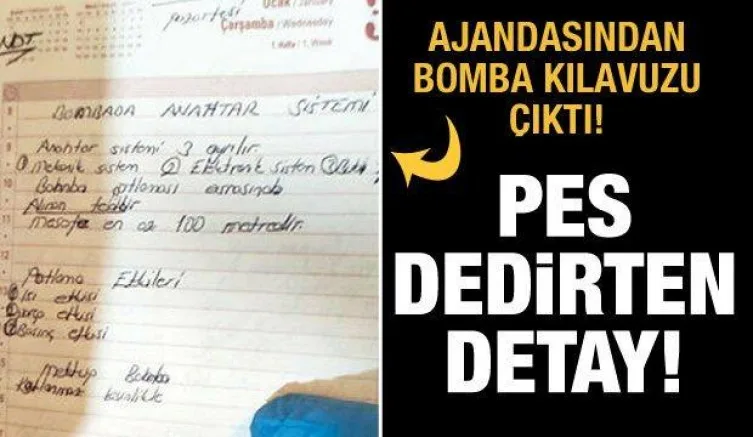 Ocak / January
Pazartesi
Çarşamba / Wednesday
1. Hafta / 1. Week
NOT
BOMBADA ANAHTAR SİSTEMİ
Anahtar sistemi 3 ayrılır.
① Mekanik sistem ② Elektronik sistem ③
Bomba patlaması esnasında
Alınan tedbir
Mesafe en az 100 metredir.
Patlama Etkileri
① Isı etkisi
② etkisi
③ Basınç etkisi
Mektup Bomba
AJANDASINDAN
BOMBA KILAVUZU
ÇIKTI!
PES
DEDİRTEN
DETAY!